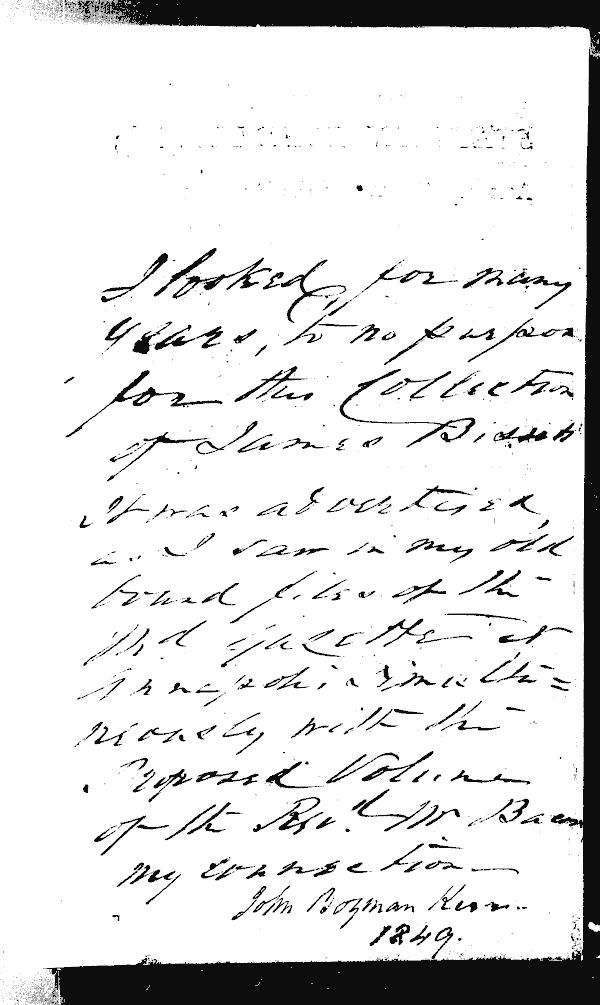 I looked, for many
years, to no purpose
for this Collection
of James Bissett
It was advertised,
as I saw in my old
bound files of the
Md Gazette at
Annapolis simulta=
neously with the
Proposed Volume
of the Revd. Mr Bacon
my connection
John Bozman Kerr.
1849.